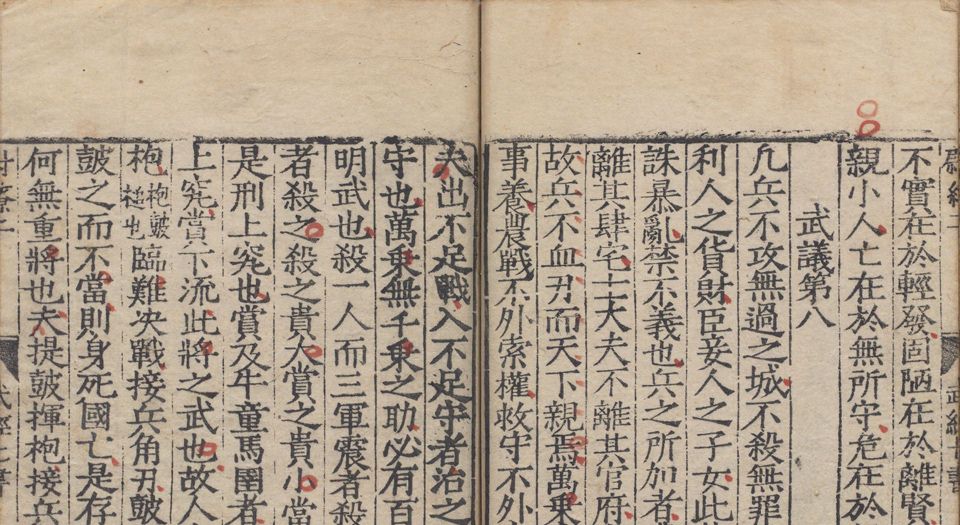 不實在於輕發固陋在於離賢
親小人亡在於無所守危在於
武議第八
凡兵不攻無過之城不殺無罪
利人之貨財臣妾人之子女此
誅暴亂禁不義也兵之所加者
離其肆宅士大夫不離其官府
故兵不血刃而天下親焉萬乗
事養農戰不外索權救守不外
夫出不足戰入不足守者治之
守也萬乗無千乗之助必有百
明武也殺一人而三軍震者殺
者殺之殺之貴大賞之貴小當
是刑上究也賞及牛童馬圉者
上究賞下流此將之武也故人
枹枹鼓槌也臨難决戰接兵角刃鼓
鼓之而不當則身死國亡是存
何無重將也夫提鼓揮枹接兵